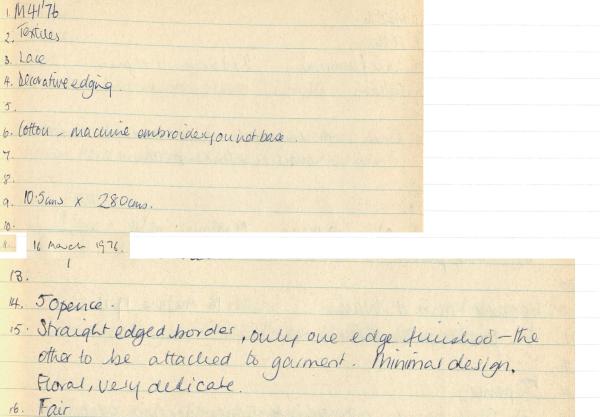 1. M41'76
2. Textiles
3. Lace
4. Decorative edging.
5.
6. Cotton - machine embroidery on net base.
7.
8.
9. 10.5cms x 280cms.
10.
11. 16 March 1976.
13.
14. 50pence.
15. Straight edged border, only one edge finished - the
other to be attached to garment. Minimal design.
Floral, very delicate.
16. Fair